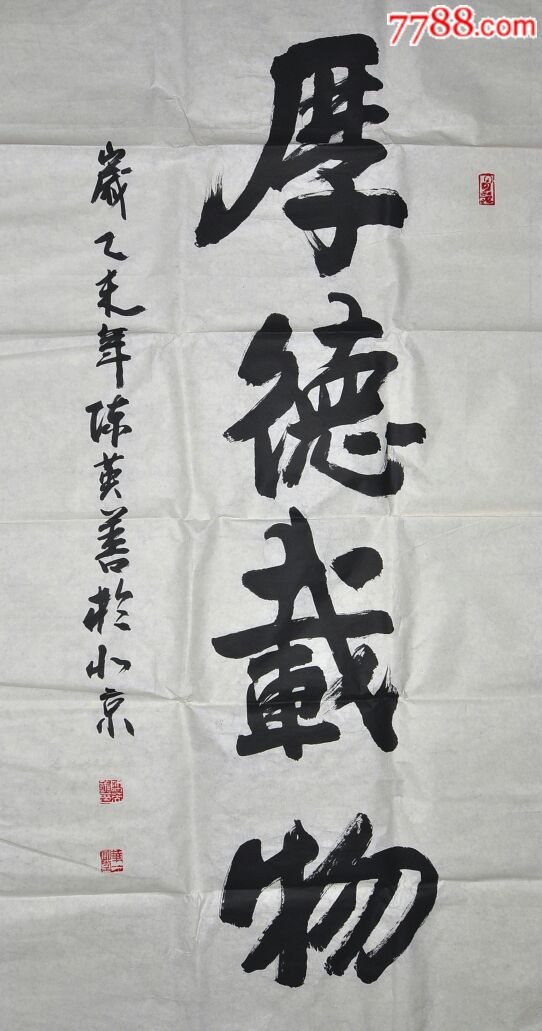 7788.com
厚德載物
歲乙未年陈英善於北京